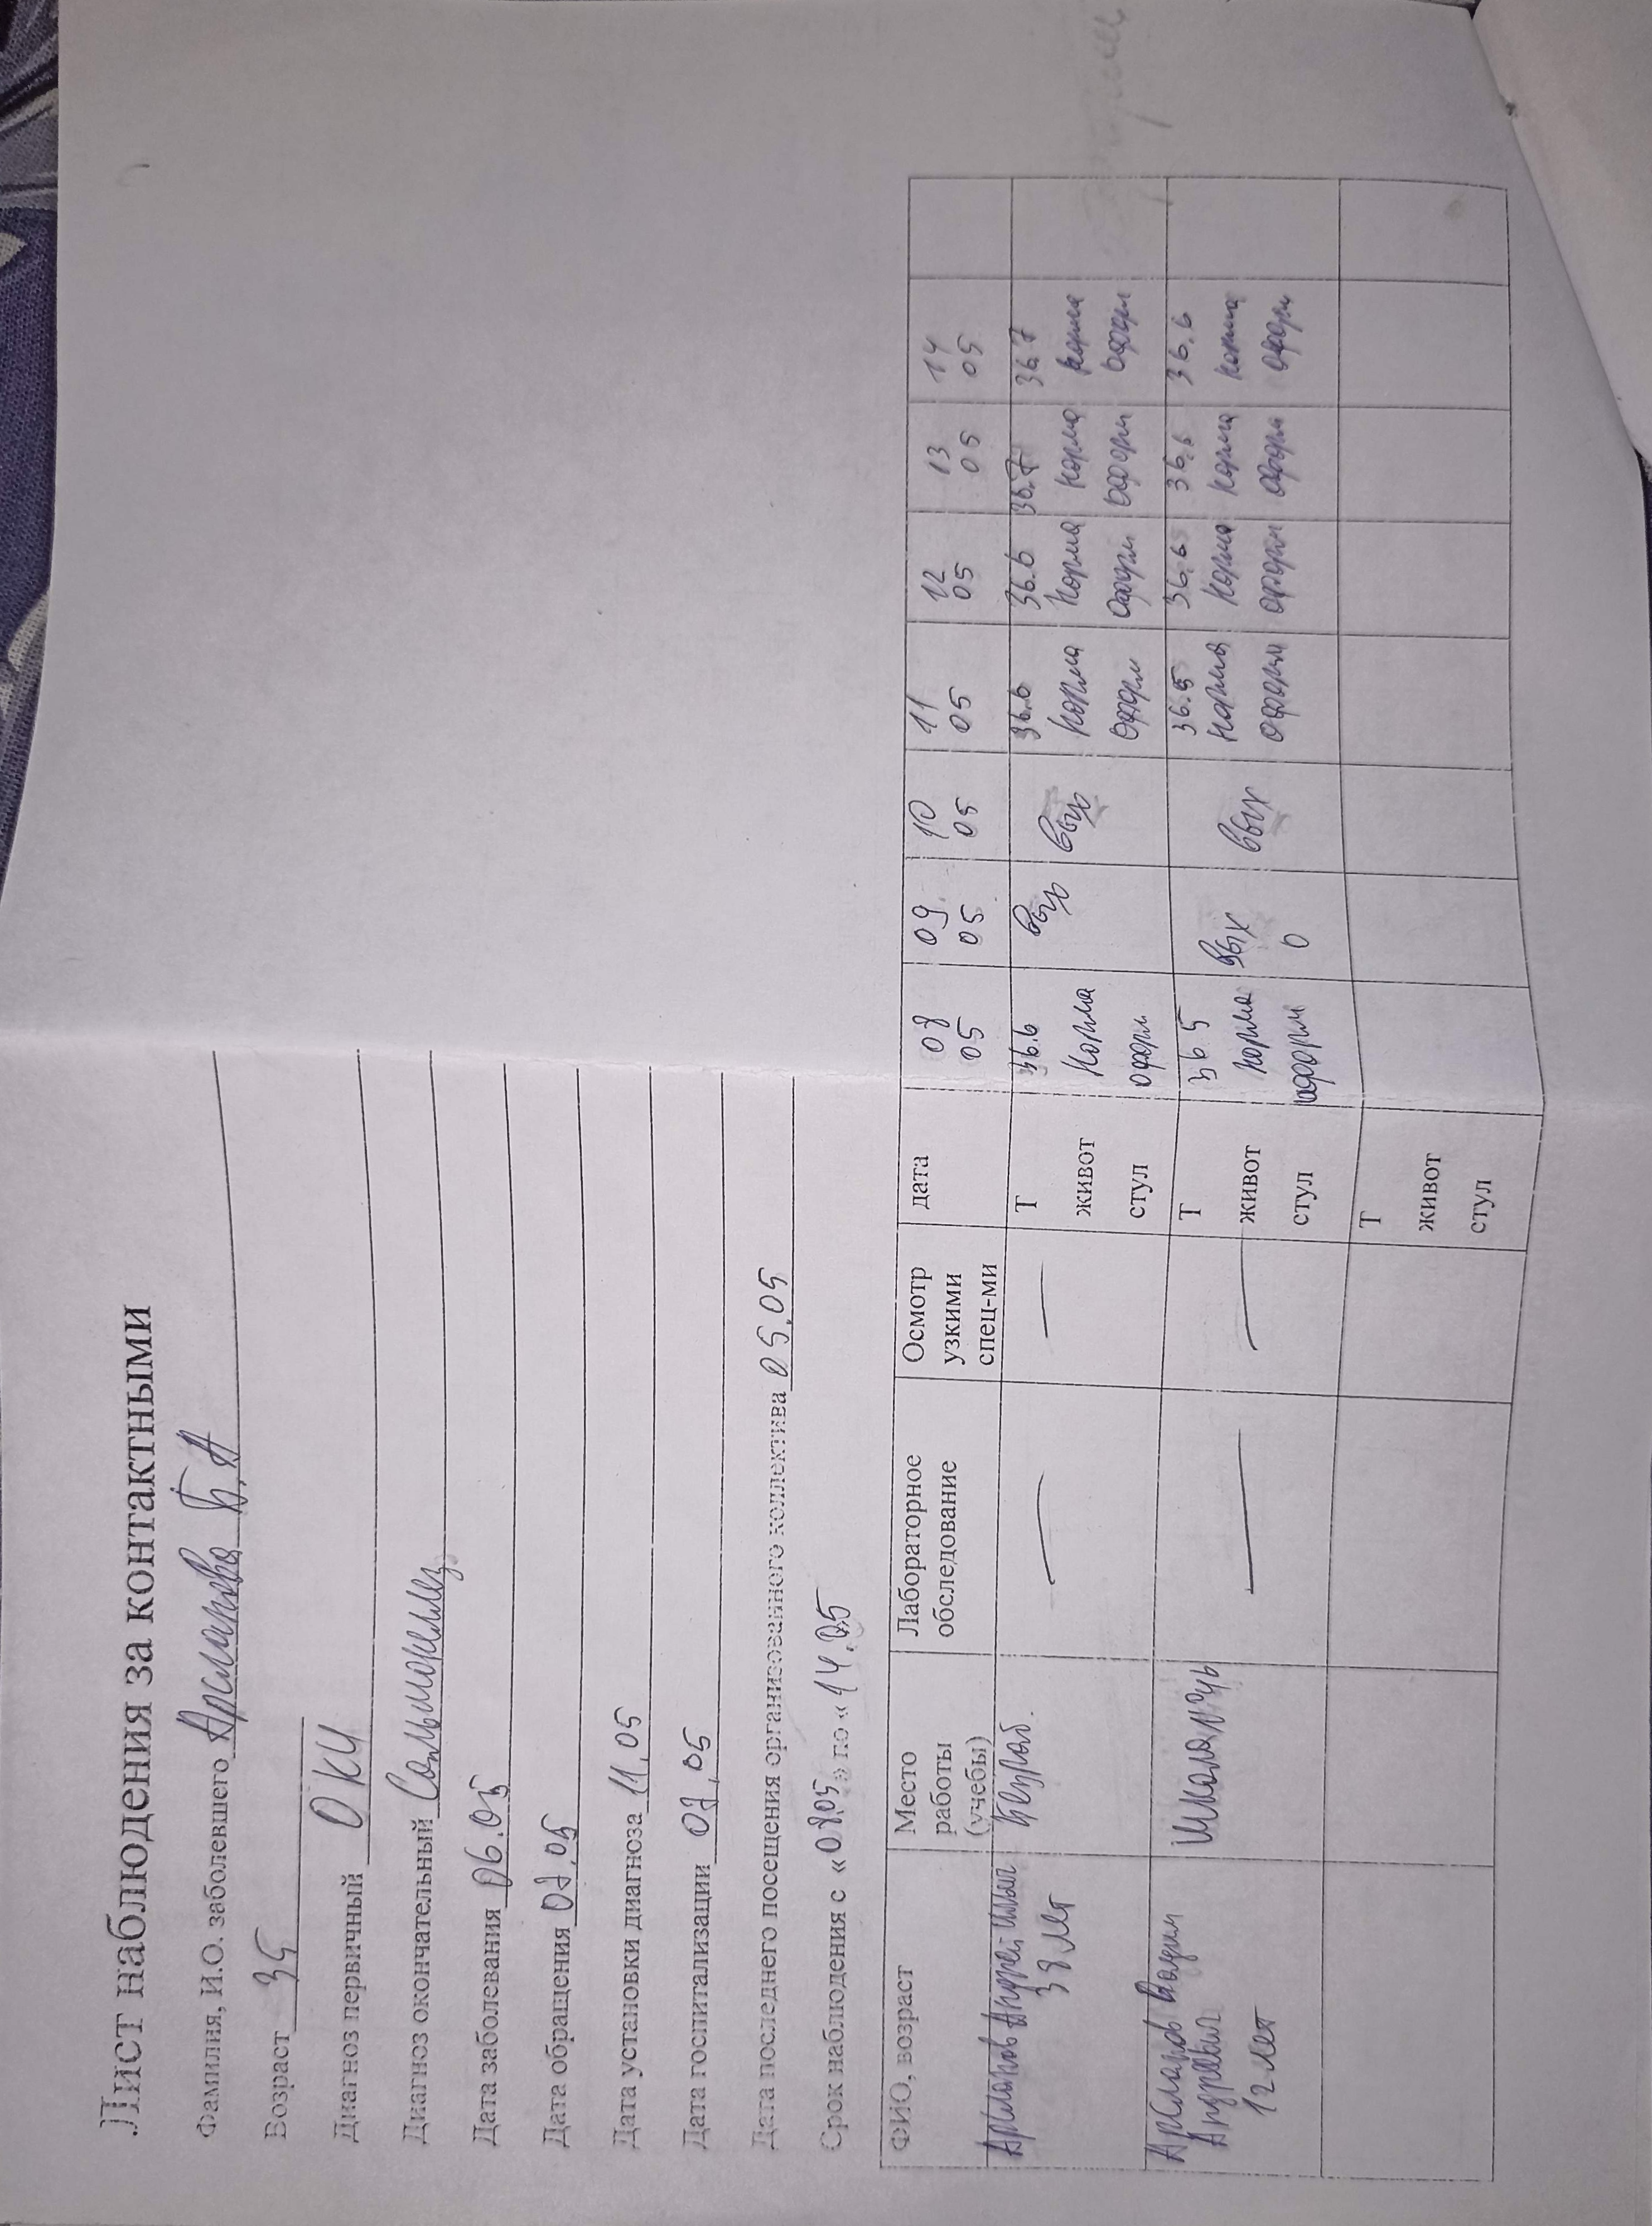 Лист наблюдения за контактными
Фамилия, И.О. заболевшего Арсланова Б.А
Возраст 35
Диагноз первичный ОКИ
Диагноз окончательный Сальмонеллез
Дата заболевания 06.05
Дата обращения 07.05
Дата установки диагноза 11.05
Дата госпитализации 07.05
Дата последнего посещения организованного коллектива 05.05
Срок наблюдения с «08.05» по «14.05
ФИО, возраст Место работы (учебы) Лабораторное обследование Осмотр узкими спец-ми дата 08 05 09 05 10 05 11 05 12 05 13 05 14 05
Арсланов Андрей 38 лет Безраб. — —
Т 36.6 вых вых 36.6 36.6 36.7 36.7
живот норма норма норма норма норма
стул оформ оформ оформ оформ оформ
Арсланов Вадим Андреевич 12 лет Школа №46 — —
Т 36 5 вых вых 36.5 36.6 36.6 36.6
живот норма норма норма норма норма
стул оформ 0 оформ оформ оформ оформ
Т
живот
стул